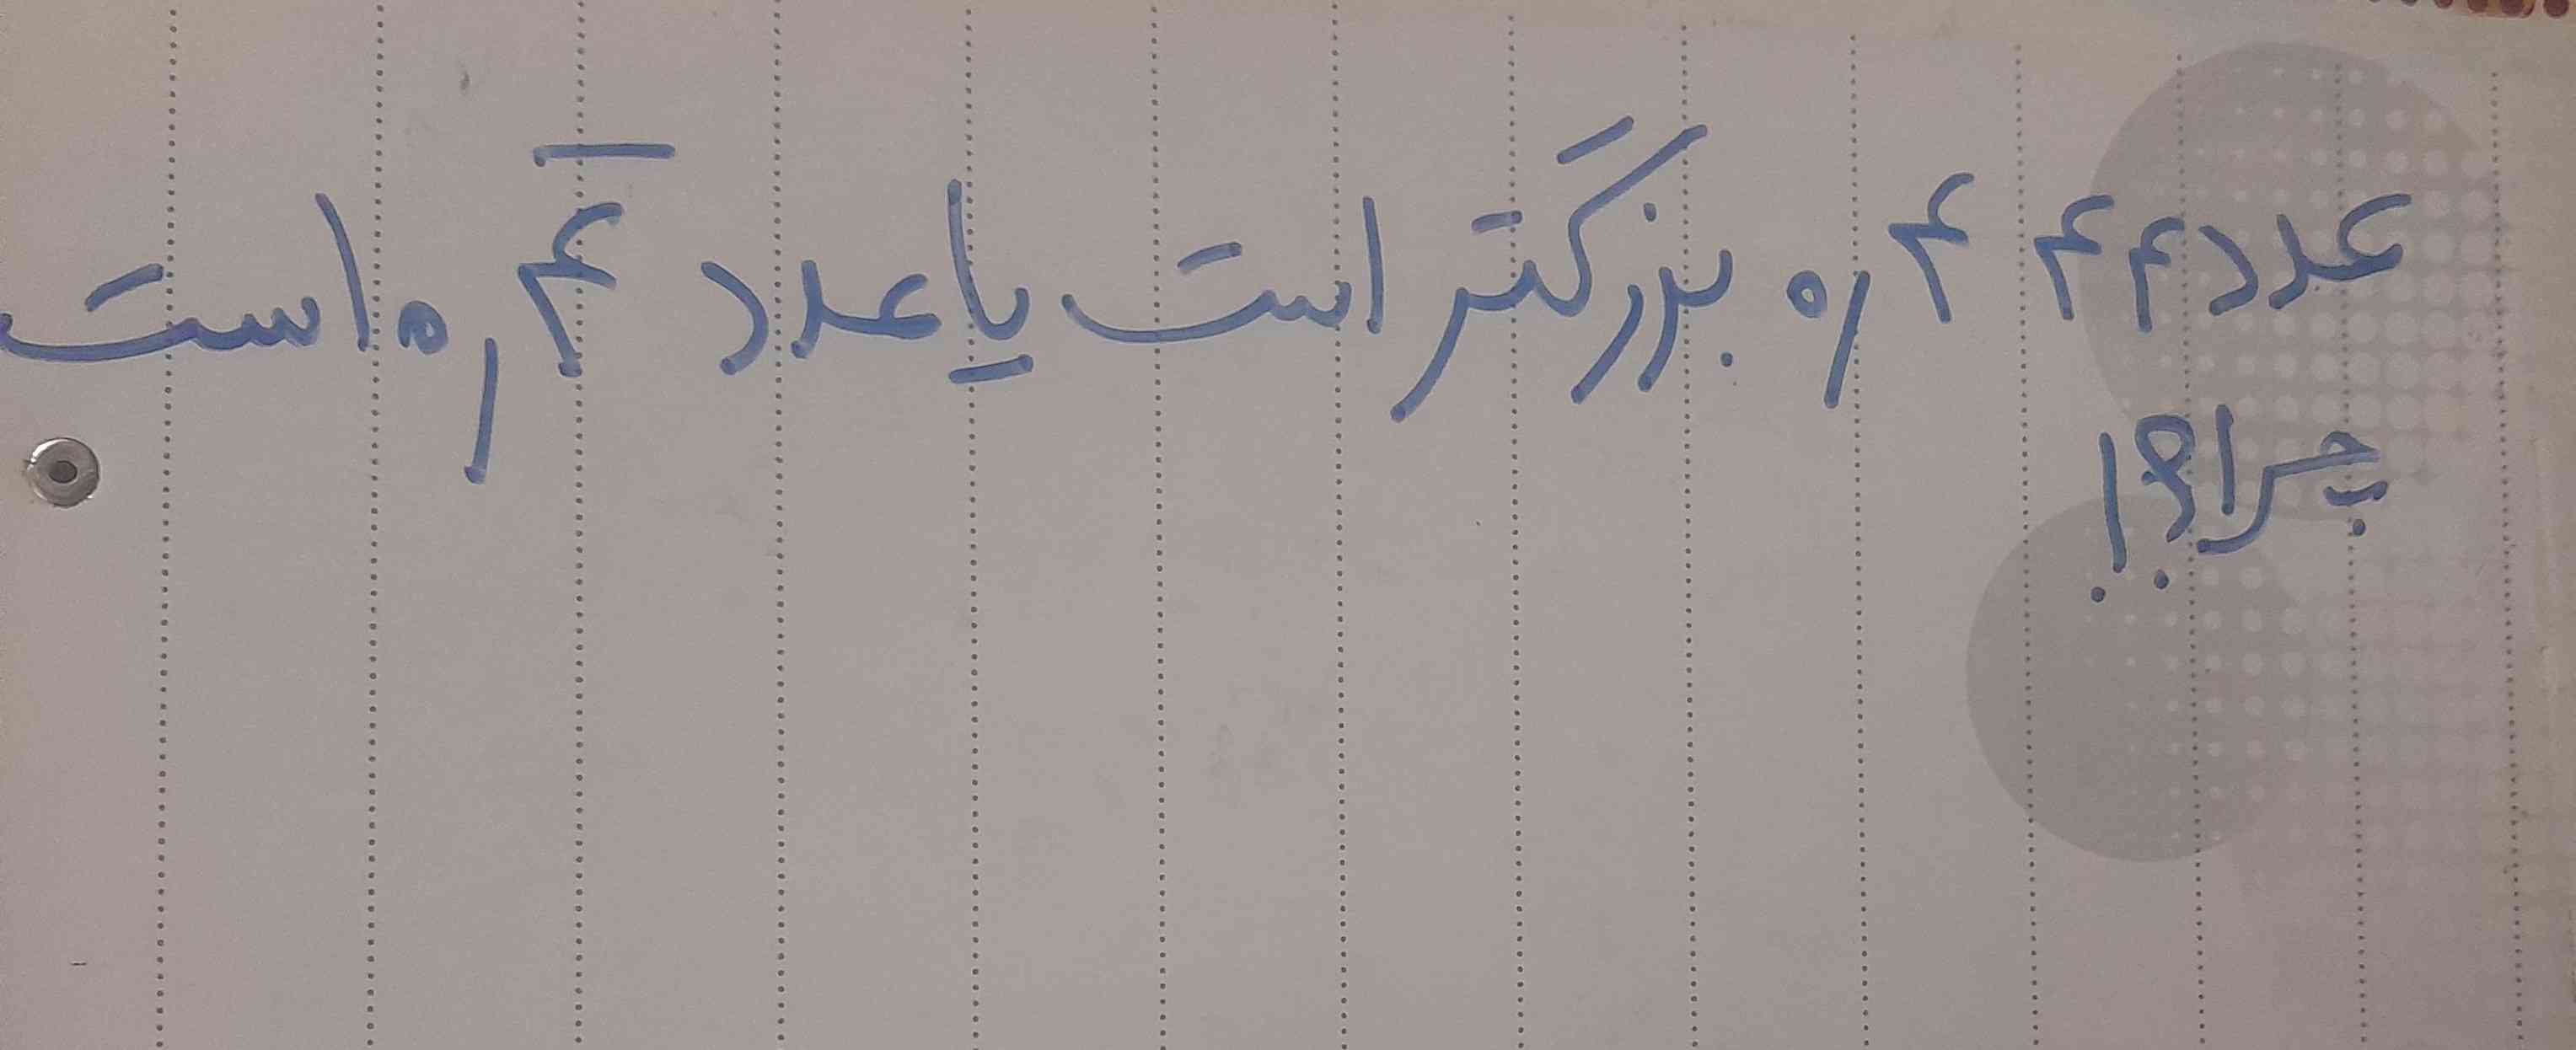 عدد ۰,۴۴۴ بزرگتر است یا عدد ۰,۴̅ است
چرا؟!